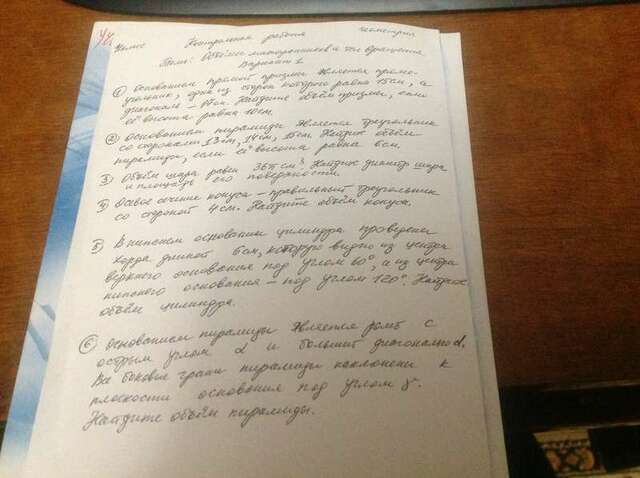 Контрольная работа геометрия
Тема: Объёмы многогранников и тел вращения
Вариант 1
① Основанием прямой призмы является прямо-
угольник, одна из сторон которого равна 15 см, а
диагональ – см. Найдите объём призмы, если
её высота равна 10 см.
② Основанием пирамиды является треугольник
со сторонами 13 см, 14 см, 15 см. Найдите объём
пирамиды, если её высота равна 6 см.
3) Объём шара равен 36π см³. Найдите диаметр шара
и площадь его поверхности.
4) Осевое сечение конуса – правильный треугольник
со стороной 4 см. Найдите объём конуса.
5) В нижнем основании цилиндра проведена
хорда длиной 6 см, которую видно из центра
верхнего основания под углом 60°, а из центра
нижнего основания – под углом 120°. Найдите
объём цилиндра.
⑥ Основанием пирамиды является ромб с
острым углом α и большей диагональю d.
Все боковые грани пирамиды наклонены к
плоскости основания под углом γ.
Найдите объём пирамиды.